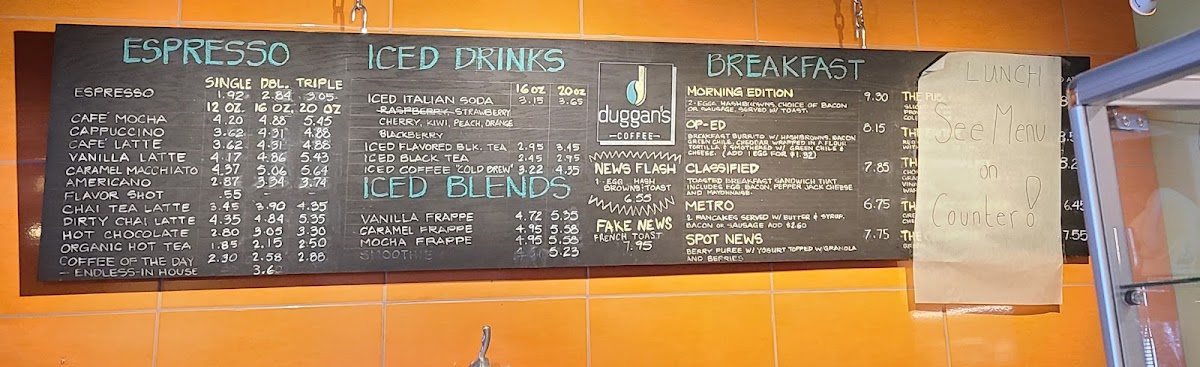 ESPRESSO
SINGLE DBL. TRIPLE
ESPRESSO 1.92 2.84 3.05
12 OZ. 16 OZ. 20 OZ
CAFÉ MOCHA 4.20 4.88 5.45
CAPPUCCINO 3.62 4.31 4.88
CAFÉ LATTE 3.62 4.31 4.88
VANILLA LATTE 4.17 4.86 5.43
CARAMEL MACCHIATO 4.37 5.06 5.64
AMERICANO 2.87 3.34 3.74
FLAVOR SHOT .55
CHAI TEA LATTE 3.45 3.90 4.35
DIRTY CHAI LATTE 4.35 4.84 5.35
HOT CHOCOLATE 2.80 3.05 3.30
ORGANIC HOT TEA 1.85 2.15 2.50
COFFEE OF THE DAY 2.30 2.58 2.88
- ENDLESS-IN HOUSE 3.62
ICED DRINKS
16 OZ 20 OZ
ICED ITALIAN SODA 3.15 3.65
RASPBERRY, STRAWBERRY
CHERRY, KIWI, PEACH, ORANGE
BLACKBERRY
ICED FLAVORED BLK. TEA 2.95 3.45
ICED BLACK TEA 2.45 2.95
ICED COFFEE "COLD BREW" 3.22 4.35
ICED BLENDS
VANILLA FRAPPE 4.72 5.35
CARAMEL FRAPPE 4.95 5.58
MOCHA FRAPPE 4.95 5.58
SMOOTHIE 5.23
duggan's
COFFEE
NEWS FLASH
1 EGG HASH
BROWNS, TOAST
6.55
FAKE NEWS
FRENCH TOAST
7.95
BREAKFAST
MORNING EDITION 9.30
2 EGGS HASHBROWNS, CHOICE OF BACON
OR SAUSAGE. SERVED W/ TOAST.
OP-ED 8.15
BREAKFAST BURRITO W/ HASHBROWNS, BACON
GREEN CHILE, CHEDDAR WRAPPED IN A FLOUR
TORTILLA & SMOTHERED W/ GREEN CHILE &
CHEESE. (ADD 1 EGG FOR $1.32)
CLASSIFIED 7.85
TOASTED BREAKFAST SANDWICH THAT
INCLUDES EGG, BACON, PEPPER JACK CHEESE
AND MAYONNAISE.
METRO 6.75
2 PANCAKES SERVED W/ BUTTER & SYRUP,
BACON OR SAUSAGE ADD $2.60
SPOT NEWS 7.75
BERRY PUREE W/ YOGURT TOPPED W/ GRANOLA
AND BERRIES
LUNCH
See Menu
on
Counter!
6.45
7.55